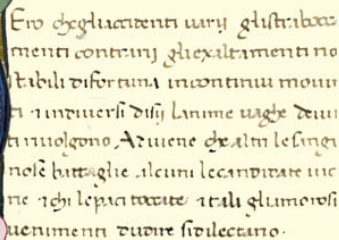 Ero che gliaccidenti varij glistraboca
menti contrarij gliexaltamenti no
stabili difortuna incontinui movi
ti &indiversi disij lanime vaghe devi
ti rivolgono, Adviene che altri lesingi
nose battaglie alcuni lecandidate vic
rie &chi lepaci toccate &tali gliamorosi
uenimenti dudire sidilectano.